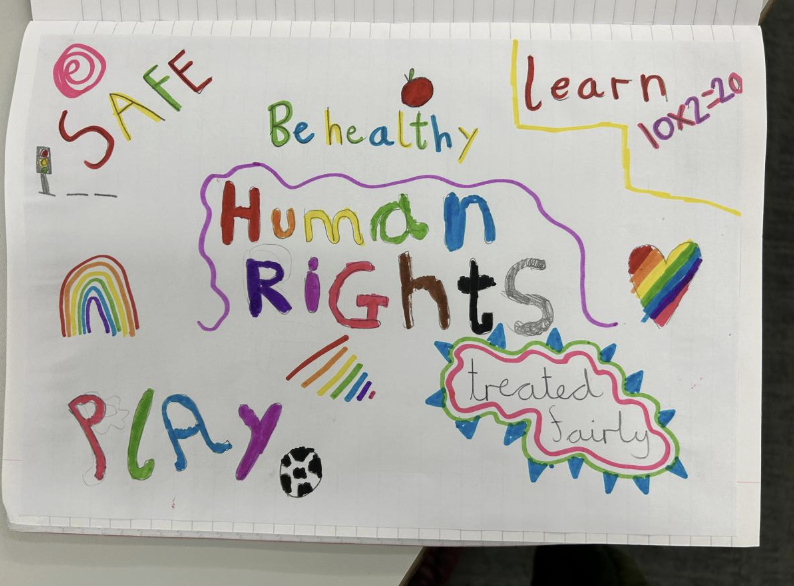 SAFE
Be healthy
learn
10x2=20
Human
RiGhts
PLAY
treated
fairly